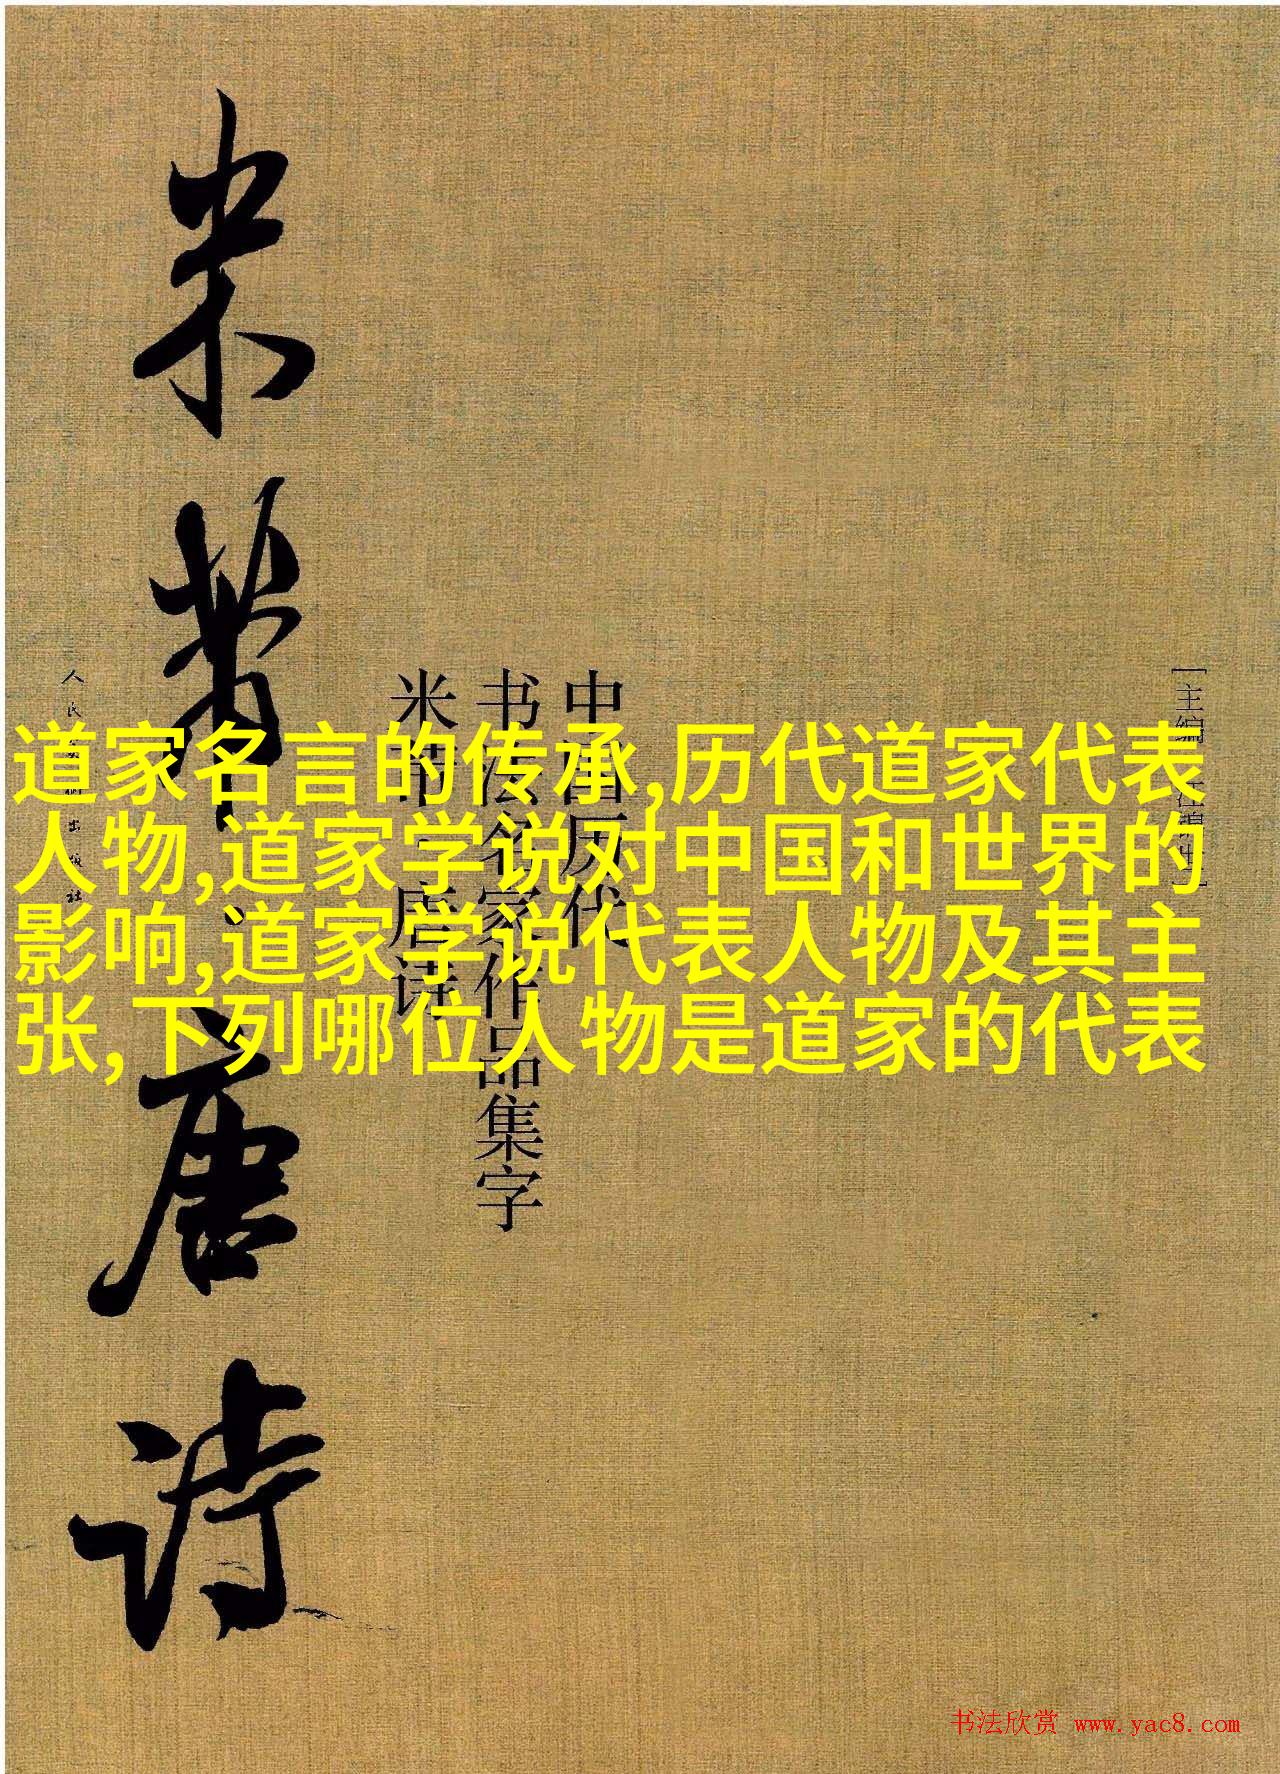 道家名言的传承,历代道家代表
人物,道家学说对中国和世界的
影响,道家学说代表人物及其主
张,下列哪位人物是道家的代表
中国历代
书法名家作品集字
米芾·唐诗
米芾·唐诗
[主编
人民美术出版社
书法欣赏 www.yac8.com